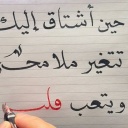 حين أشتاق إليك
تتغير ملامحي
ويتعب قلب